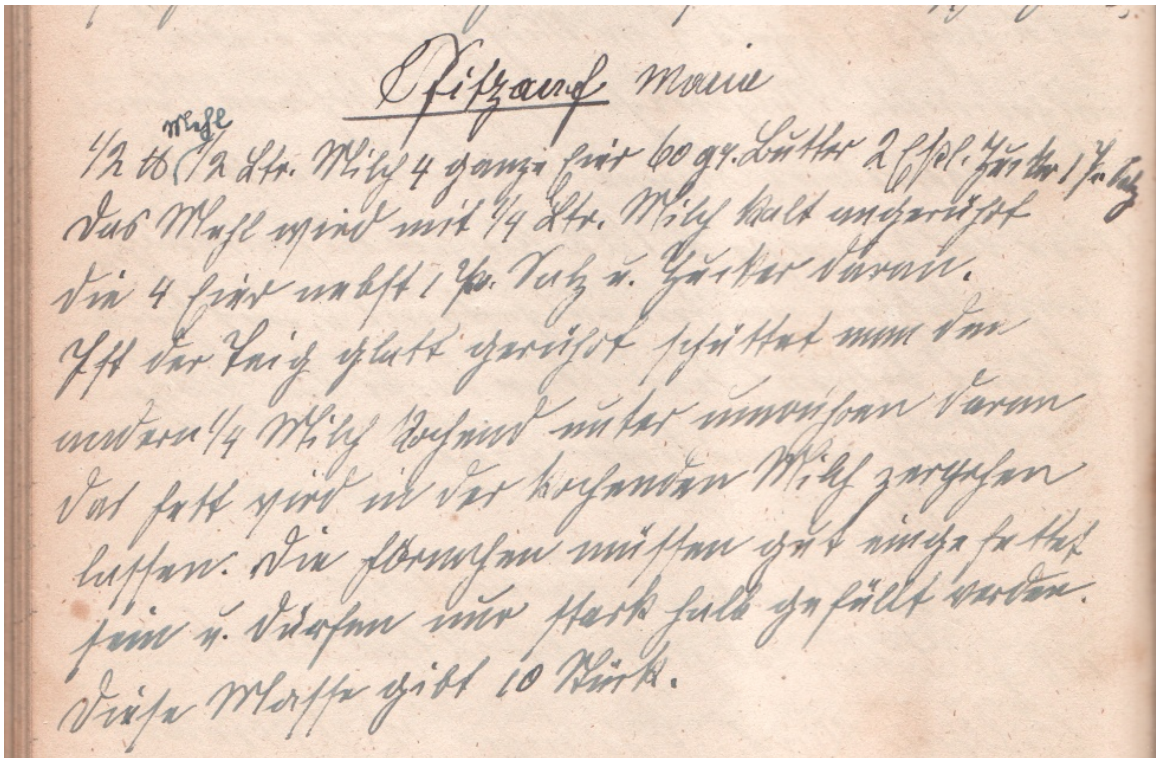 Pfitzauf Marie
Mehl
1/2 ℔ 1/2 Ltr. Milch 4 ganze Eier 60 gr. Butter 2 Eßl. Zucker 1 Pr. Salz
Das Mehl wird mit 1/4 Ltr. Milch kalt angerührt
die 4 Eier nebst 1 Pr. Salz u. Zucker daran.
Ist der Teig glatt gerührt schüttet man den
andern 1/4 Milch kochend unter umrühren daran
das Fett wird in der kochenden Milch zergehen
lassen. Die Förmchen müssen gut eingefettet
sein u. dürfen nur stark halb gefüllt werden.
Diese Masse gibt 10 Stück.